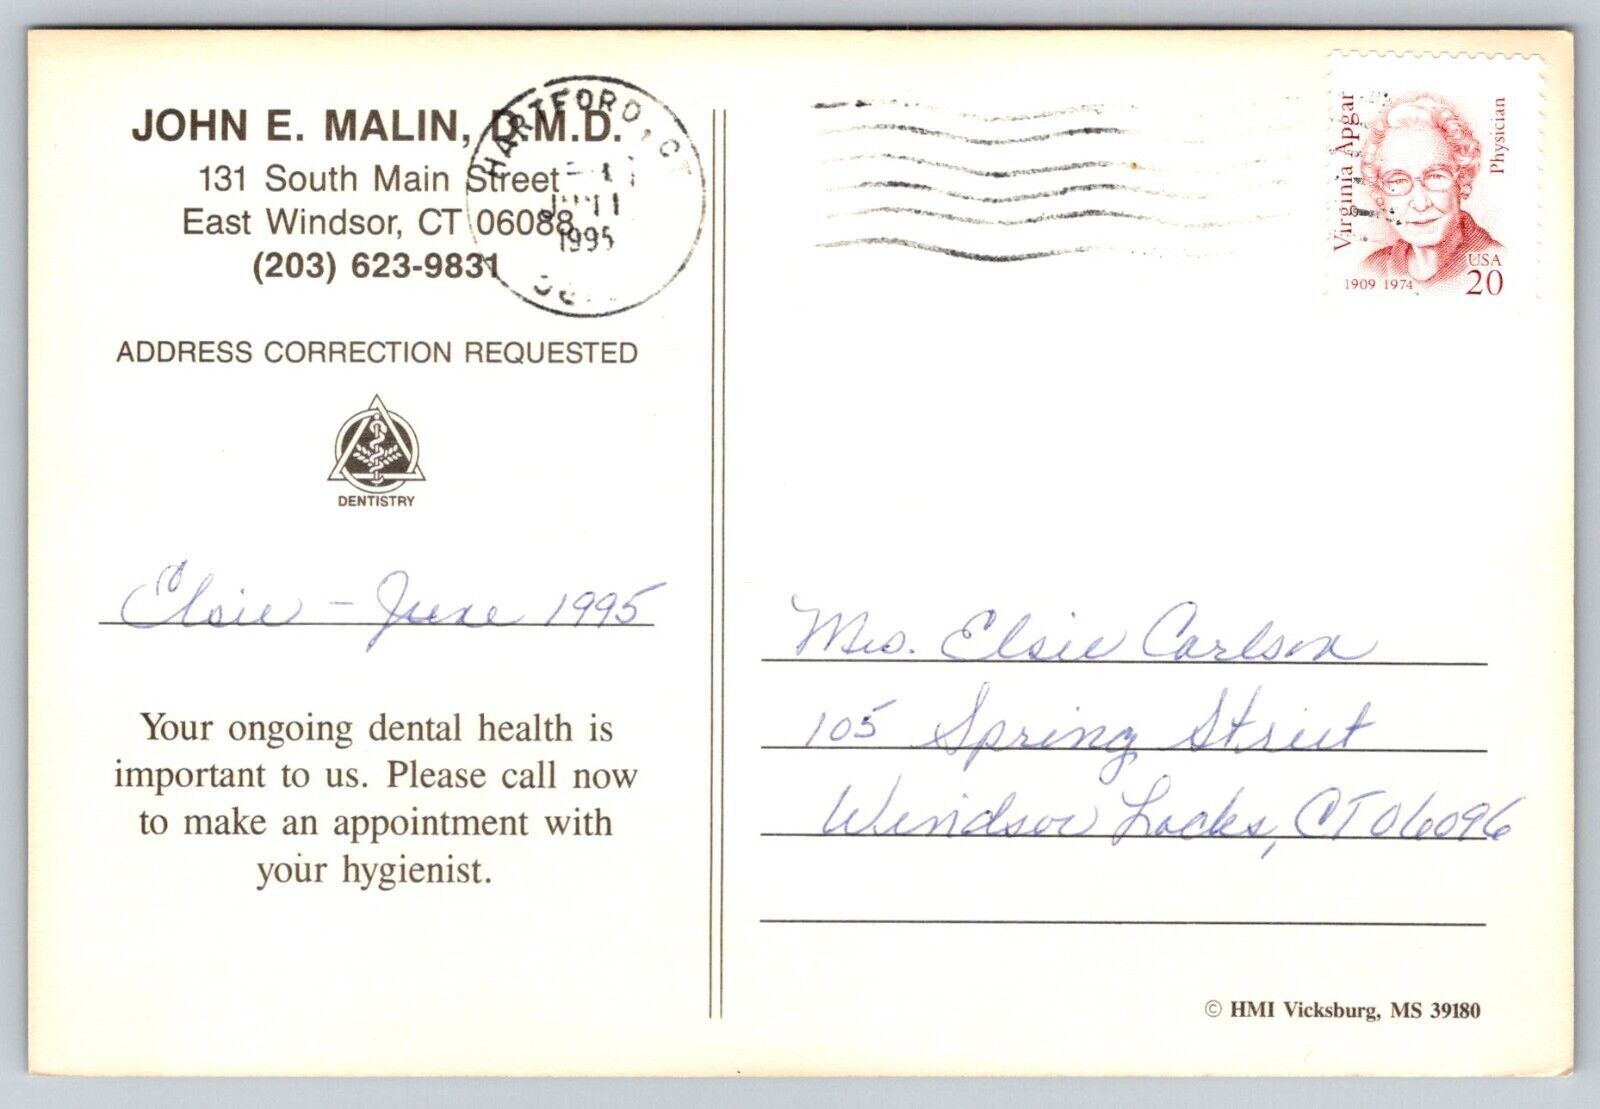 JOHN E. MALIN, D.M.D.
131 South Main Street
East Windsor, CT 06088
(203) 623-9831
HARTFORD, CT
1995
ADDRESS CORRECTION REQUESTED
DENTISTRY
Elsie - June 1995
Your ongoing dental health is
important to us. Please call now
to make an appointment with
your hygienist.
Virginia Apgar
Physician
1909 1974
USA
20
Mrs. Elsie Carlson
105 Spring Street
Windsor Locks, CT 06096
© HMI Vicksburg, MS 39180